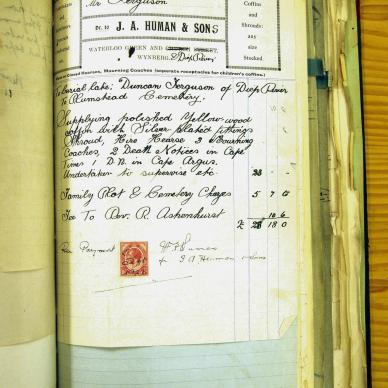 Mr Ferguson
Coffins
and
Shrouds,
any
size
Stocked.
Dr. to J. A. HUMAN & SONS
WATERLOO GREEN AND
WYNBERG. & Diep River
Closed Hearses, Mourning Coaches (separate receptacles for children's coffins.)
To burial late: Duncan Ferguson of Diep River
To Plumstead Cemetery.
Supplying polished Yellow wood
coffin with Silver plated fittings
Shroud, Hire Hearse 3 Mourning
Coaches, 2 Death Notices in Cape
Times 1 D.N. in Cape Argus.
Undertaker to supervise etc
Family Plot & Cemetery Charges 5 7 6
Fee To Rev. R. Ashenhurst 10 6
£ 18 0
Payment
J A Human & Sons